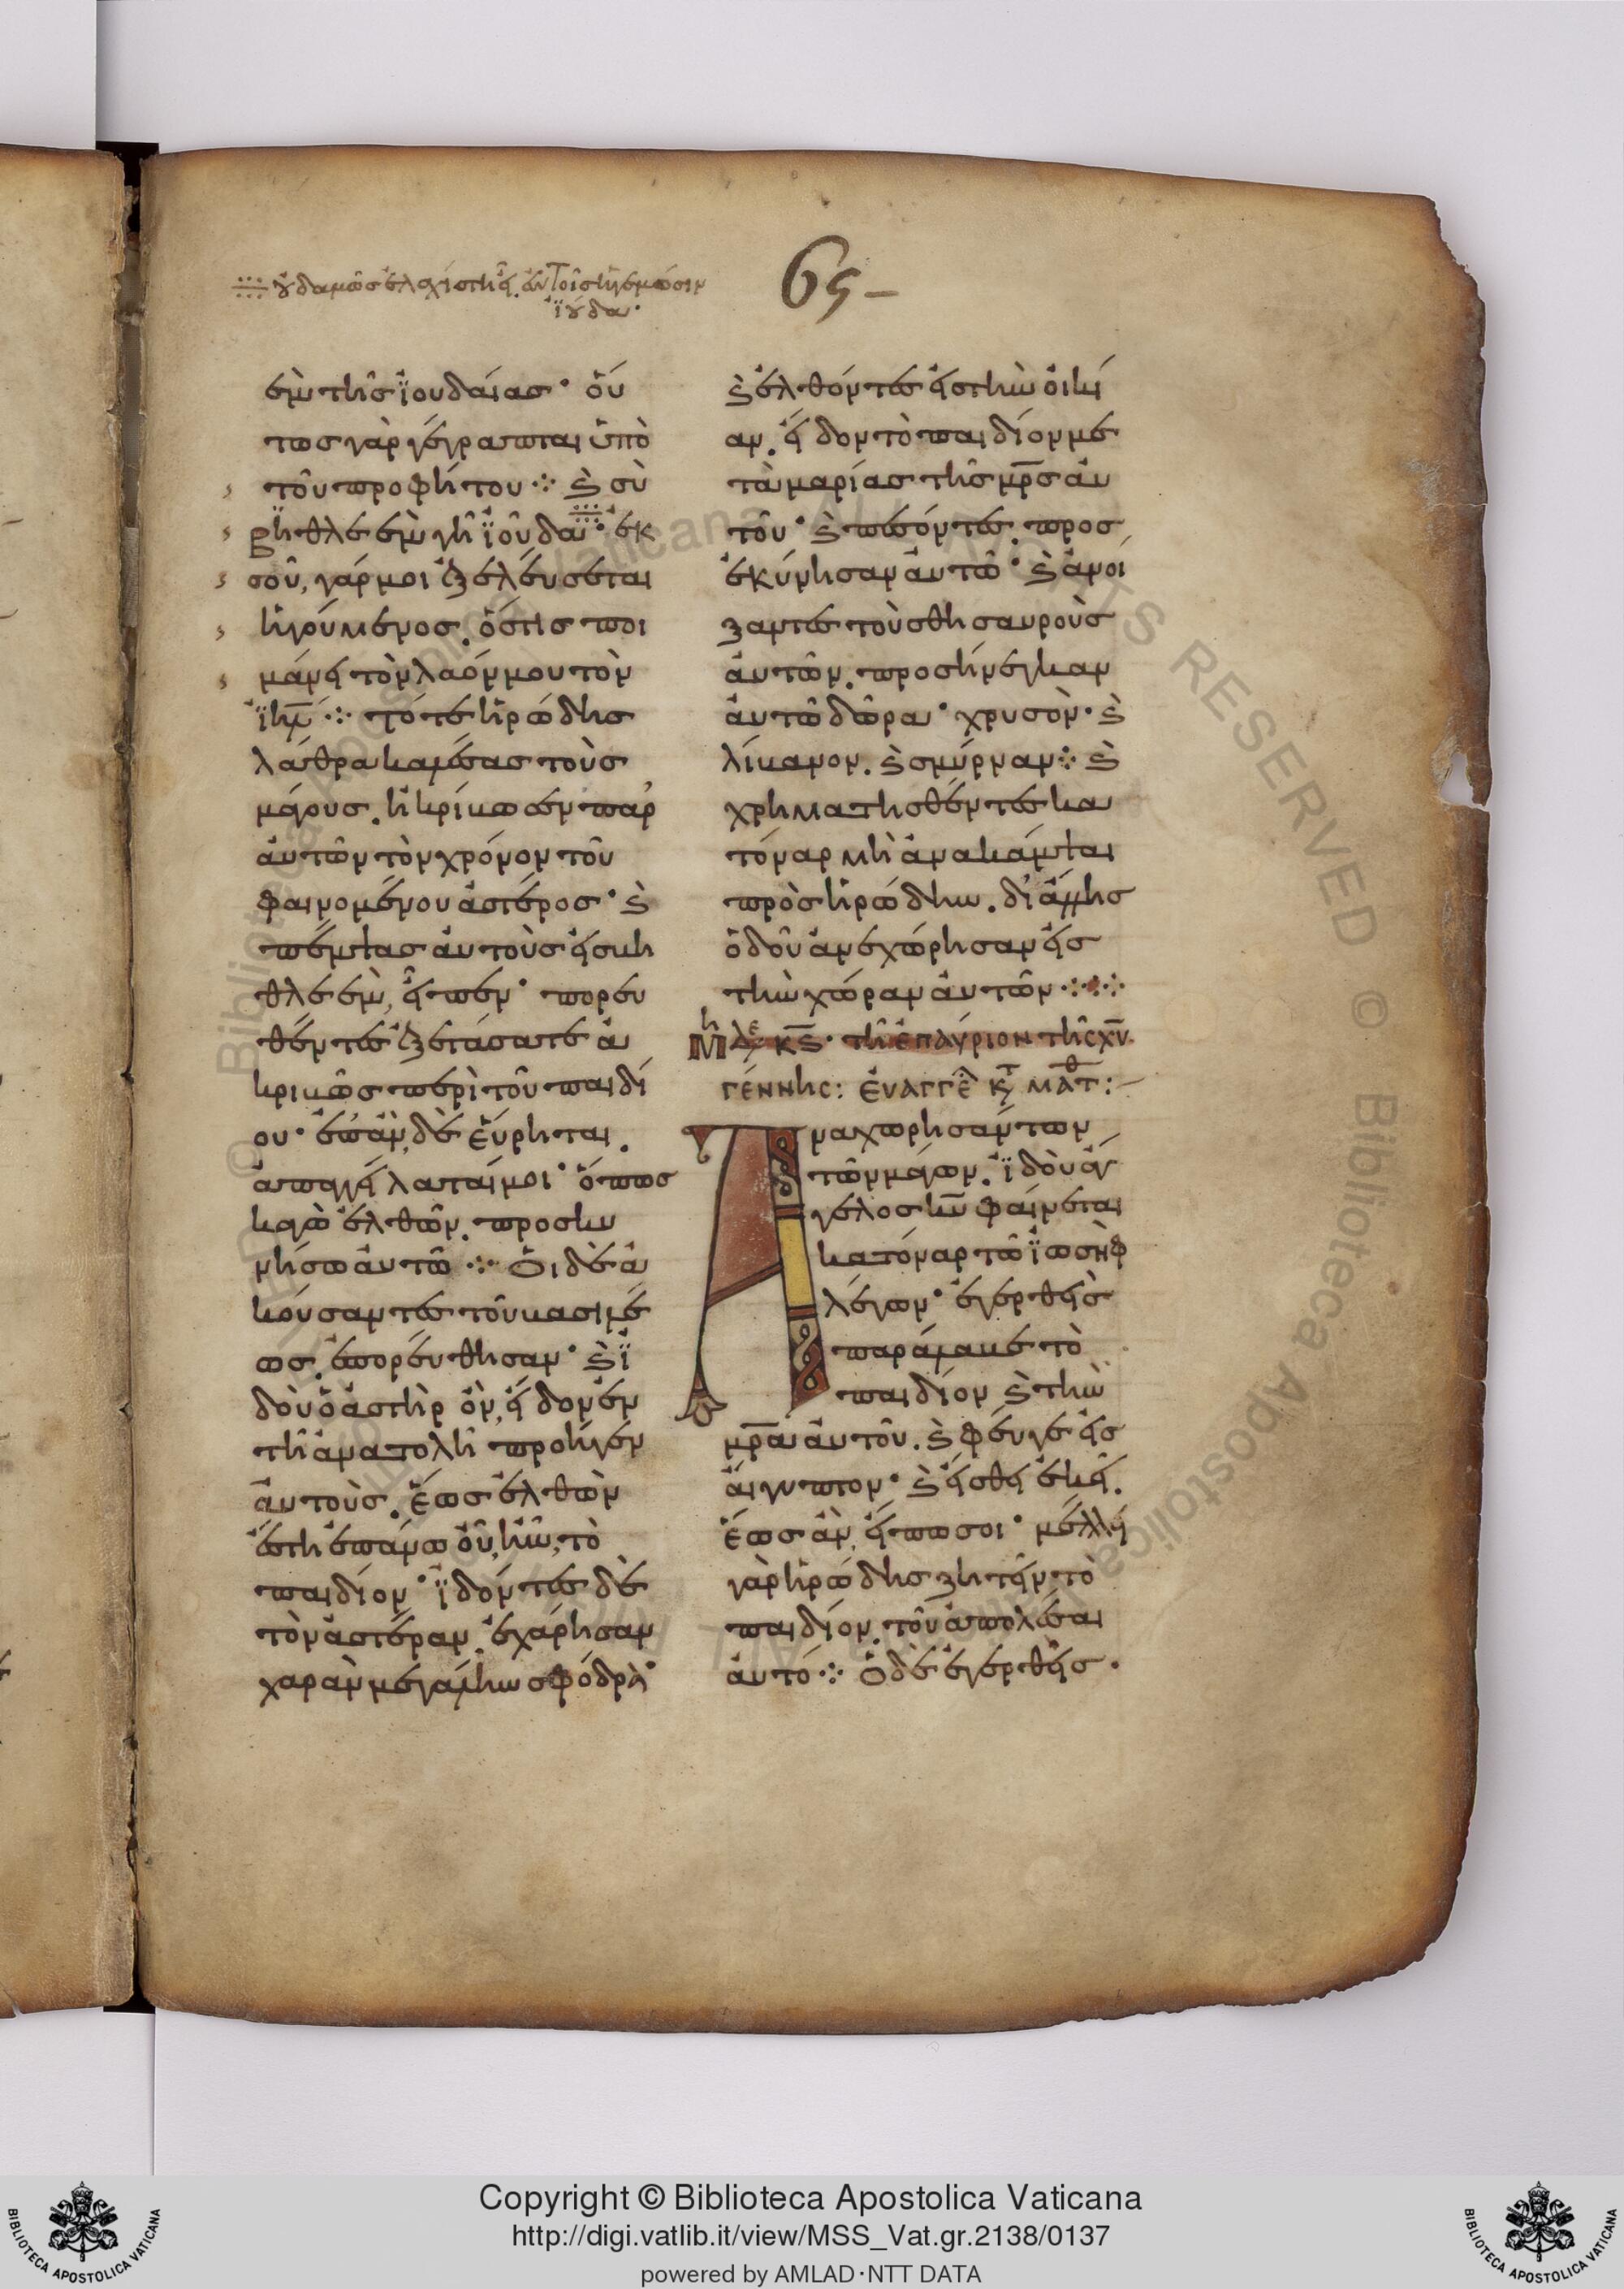 οὐδαμῶς ἐλαχίστη εἶ ἐν τοῖς ἡγεμόσιν
ἰούδα·
65
ἐμ τῆς ἰουδαίας· οὕ
τως γὰρ γέγραπται ὑπὸ
τοῦ προφήτου ⁘ ϗ σὺ
βηθλεὲμ γῆ ἰοῦδα· ἐκ
σοῦ, γάρ μοι ἐξελεύσεται
ἡγούμενος. ὅστις ποι
μάνει τὸν λαόν μου τὸν
ἰη̅λ̅ ⁘ τότε ἡρώδης
λάθρα καλέσας τοὺς
μάγους. ἠκρίβωσεν παρ'
αὐτῶν τὸν χρόνον τοῦ
φαινομένου ἀστέρος· ϗ
πέμψας αὐτοὺς εἰς βη
θλεὲμ, εἶπεν· πορευ
θέντες ἐξετάσατε ἀ
κριβῶς περὶ τοῦ παιδί
ου· ἐπὰν, δὲ εὕρηται.
ἀπαγγείλαταί μοι· ὅπως
καγὼ ἐλθὼν. προσκυ
νήσω αὐτῶ ⁘ Οἱ δὲ ἀ
κούσαντες τοῦ βασιλέ
ως. ἐπορεύθησαν· ϗ ἰ
δοὺ ὁ ἀστὴρ ὃν, εἶδον ἐν
τῆ ἀνατολῆ προῆγεν
αὐτοὺς. ἕως ἐλθὼν
ἔστη ἐπάνω οὗ, ἦν, τὸ
παιδίον· ἰδόντες δὲ
τὸν ἀστέραν. ἐχάρησαν
χαρὰν μεγάλην σφόδρα·
ϗ ἐλθόντες εἰς τὴν οἰκί
αν. εἶδον τὸ παιδίον με
τὰ μαρίας τῆς μρ̅ς αὐ
τοῦ· ϗ πεσόντες. προσ
εκύνησαν αὐτῶ· ϗ ἀνοί
ξαντες τοὺς θησαυροὺς
αὐτῶν. προσήνεγκαν
αὐτῶ δῶρα· χρυσὸν· ϗ
λίβανον. ϗ σμύρναν ⁘ ϗ
χρηματισθέντες κα
τόναρ μὴ ἀνακάμψαι
πρὸς ἡρώδην. δι' ἄλλης
ὁδοῦ ἀνεχώρησαν εἰς
τὴν χώραν αὐτῶν ⁘⁘
Μη δε κϛ̅· τῆ ἐπαύριον τῆς χυ̅
γέννης: εὐαγγε κτ ματθ:
Αναχωρησάντων
τῶν μάγων. ἰδοὺ ἄγ
γελος κυ̅ φαίνεται
κατόναρ τῶ ἰωσὴφ
λέγων· ἐγερθεὶς
παράλαβε τὸ
παιδίον ϗ τὴν
μρ̅α αὐτοῦ. ϗ φεύγε εἰς
αἴγυπτον· ϗ εἴσθει ἐκεῖ.
ἕως ἂν, εἴπω σοι· μέλλει
γὰρ ἡρώδης ζητεῖν τὸ
παιδίον. τοῦ ἀπολέσαι
αὐτό ⁘ Ὁ δὲ ἐγερθεὶς.
© Biblioteca Apostolica Vaticana ALL RIGHTS RESERVED
Copyright © Biblioteca Apostolica Vaticana
http://digi.vatlib.it/view/MSS_Vat.gr.2138/0137
powered by AMLAD·NTT DATA
BIBLIOTECA APOSTOLICA VATICANA
BIBLIOTECA APOSTOLICA VATICANA